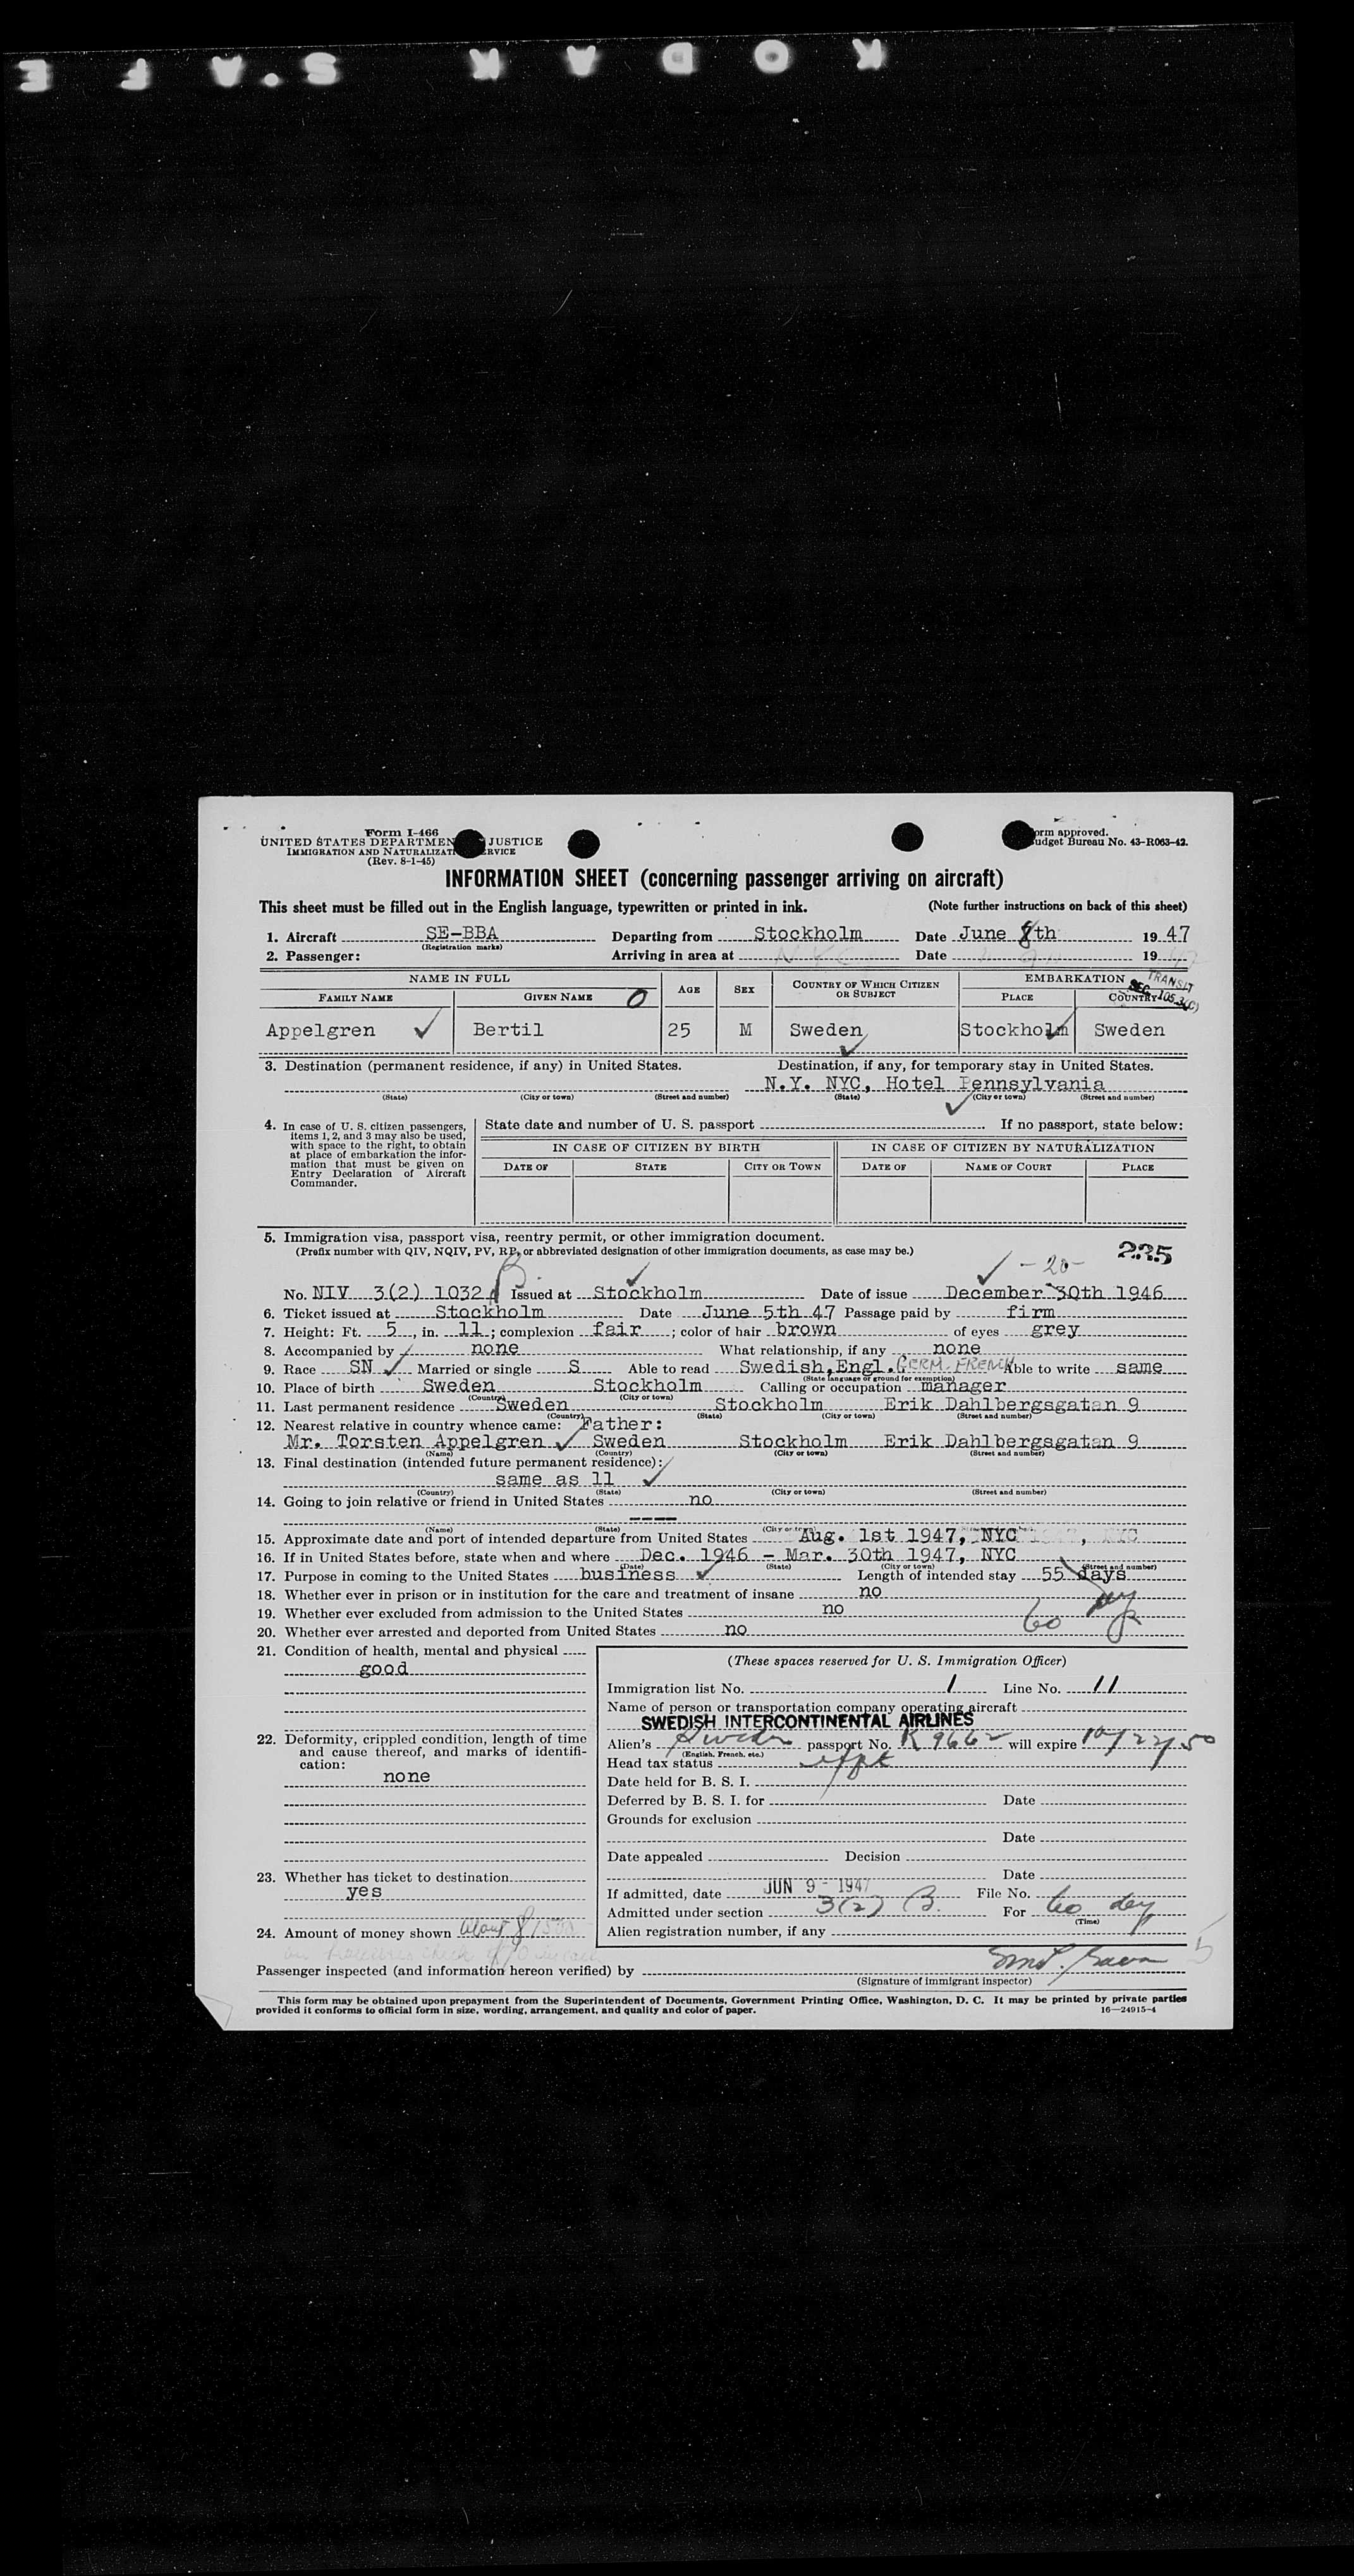 KODAK S.A F E
Form I-466
UNITED STATES DEPARTMEN JUSTICE
IMMIGRATION AND NATURALIZATI RVICE
(Rev. 8-1-45)
orm approved.
udget Bureau No. 43-R063-42.
INFORMATION SHEET (concerning passenger arriving on aircraft)
This sheet must be filled out in the English language, typewritten or printed in ink. (Note further instructions on back of this sheet)
1. Aircraft SE-BBA Departing from Stockholm Date June 8th 1947
(Registration marks)
2. Passenger: Arriving in area at NYC Date 19
NAME IN FULL AGE SEX COUNTRY OF WHICH CITIZEN OR SUBJECT EMBARKATION TRANSIT SEC. 105.3(C)
FAMILY NAME GIVEN NAME O PLACE COUNTRY
Appelgren ✓ Bertil 25 M Sweden Stockholm Sweden
3. Destination (permanent residence, if any) in United States. Destination, if any, for temporary stay in United States.
N.Y. NYC, Hotel Pennsylvania
(State) (City or town) (Street and number) (State) (City or town) (Street and number)
4. In case of U. S. citizen passengers, items 1, 2, and 3 may also be used, with space to the right, to obtain at place of embarkation the information that must be given on Entry Declaration of Aircraft Commander.
State date and number of U. S. passport If no passport, state below:
IN CASE OF CITIZEN BY BIRTH IN CASE OF CITIZEN BY NATURALIZATION
DATE OF STATE CITY OR TOWN DATE OF NAME OF COURT PLACE
5. Immigration visa, passport visa, reentry permit, or other immigration document.
(Prefix number with QIV, NQIV, PV, RP, or abbreviated designation of other immigration documents, as case may be.)
225
B. ✓ ✓ -20-
No. NIV 3(2) 1032 Issued at Stockholm Date of issue December 30th 1946
6. Ticket issued at Stockholm Date June 5th 47 Passage paid by firm
7. Height: Ft. 5, in. 11; complexion fair; color of hair brown of eyes grey
8. Accompanied by none What relationship, if any none
9. Race SN ✓ Married or single S Able to read Swedish, Engl. GERM. FRENCH Able to write same
(State language or ground for exemption)
10. Place of birth Sweden Stockholm Calling or occupation manager
(Country) (City or town)
11. Last permanent residence Sweden Stockholm Erik Dahlbergsgatan 9
(Country) (State) (City or town) (Street and number)
12. Nearest relative in country whence came: Father:
Mr. Torsten Appelgren ✓ Sweden Stockholm Erik Dahlbergsgatan 9
(Name) (Country) (City or town) (Street and number)
13. Final destination (intended future permanent residence):
same as 11 ✓
(Country) (State) (City or town) (Street and number)
14. Going to join relative or friend in United States no
----
(Name) (State) (City or town)
15. Approximate date and port of intended departure from United States Aug. 1st 1947, NYC
16. If in United States before, state when and where Dec. 1946 - Mar. 30th 1947, NYC
(Date) (State) (City or town) (Street and number)
17. Purpose in coming to the United States business ✓ Length of intended stay 55 days
18. Whether ever in prison or in institution for the care and treatment of insane no
19. Whether ever excluded from admission to the United States no 60
20. Whether ever arrested and deported from United States no
21. Condition of health, mental and physical
good
22. Deformity, crippled condition, length of time and cause thereof, and marks of identification:
none
23. Whether has ticket to destination
yes
24. Amount of money shown about $
(These spaces reserved for U. S. Immigration Officer)
Immigration list No. 1 Line No. 11
Name of person or transportation company operating aircraft
SWEDISH INTERCONTINENTAL AIRLINES
Alien's Sweden passport No. K 9662 will expire 10/22/50
(English, French, etc.)
Head tax status
Date held for B. S. I.
Deferred by B. S. I. for Date
Grounds for exclusion
Date
Date appealed Decision
Date
If admitted, date JUN 9 - 1947 File No.
Admitted under section 3(2) B. For 60 day
(Time)
Alien registration number, if any
Passenger inspected (and information hereon verified) by
(Signature of immigrant inspector)
This form may be obtained upon prepayment from the Superintendent of Documents, Government Printing Office, Washington, D. C. It may be printed by private parties
provided it conforms to official form in size, wording, arrangement, and quality and color of paper. 16—24915-4